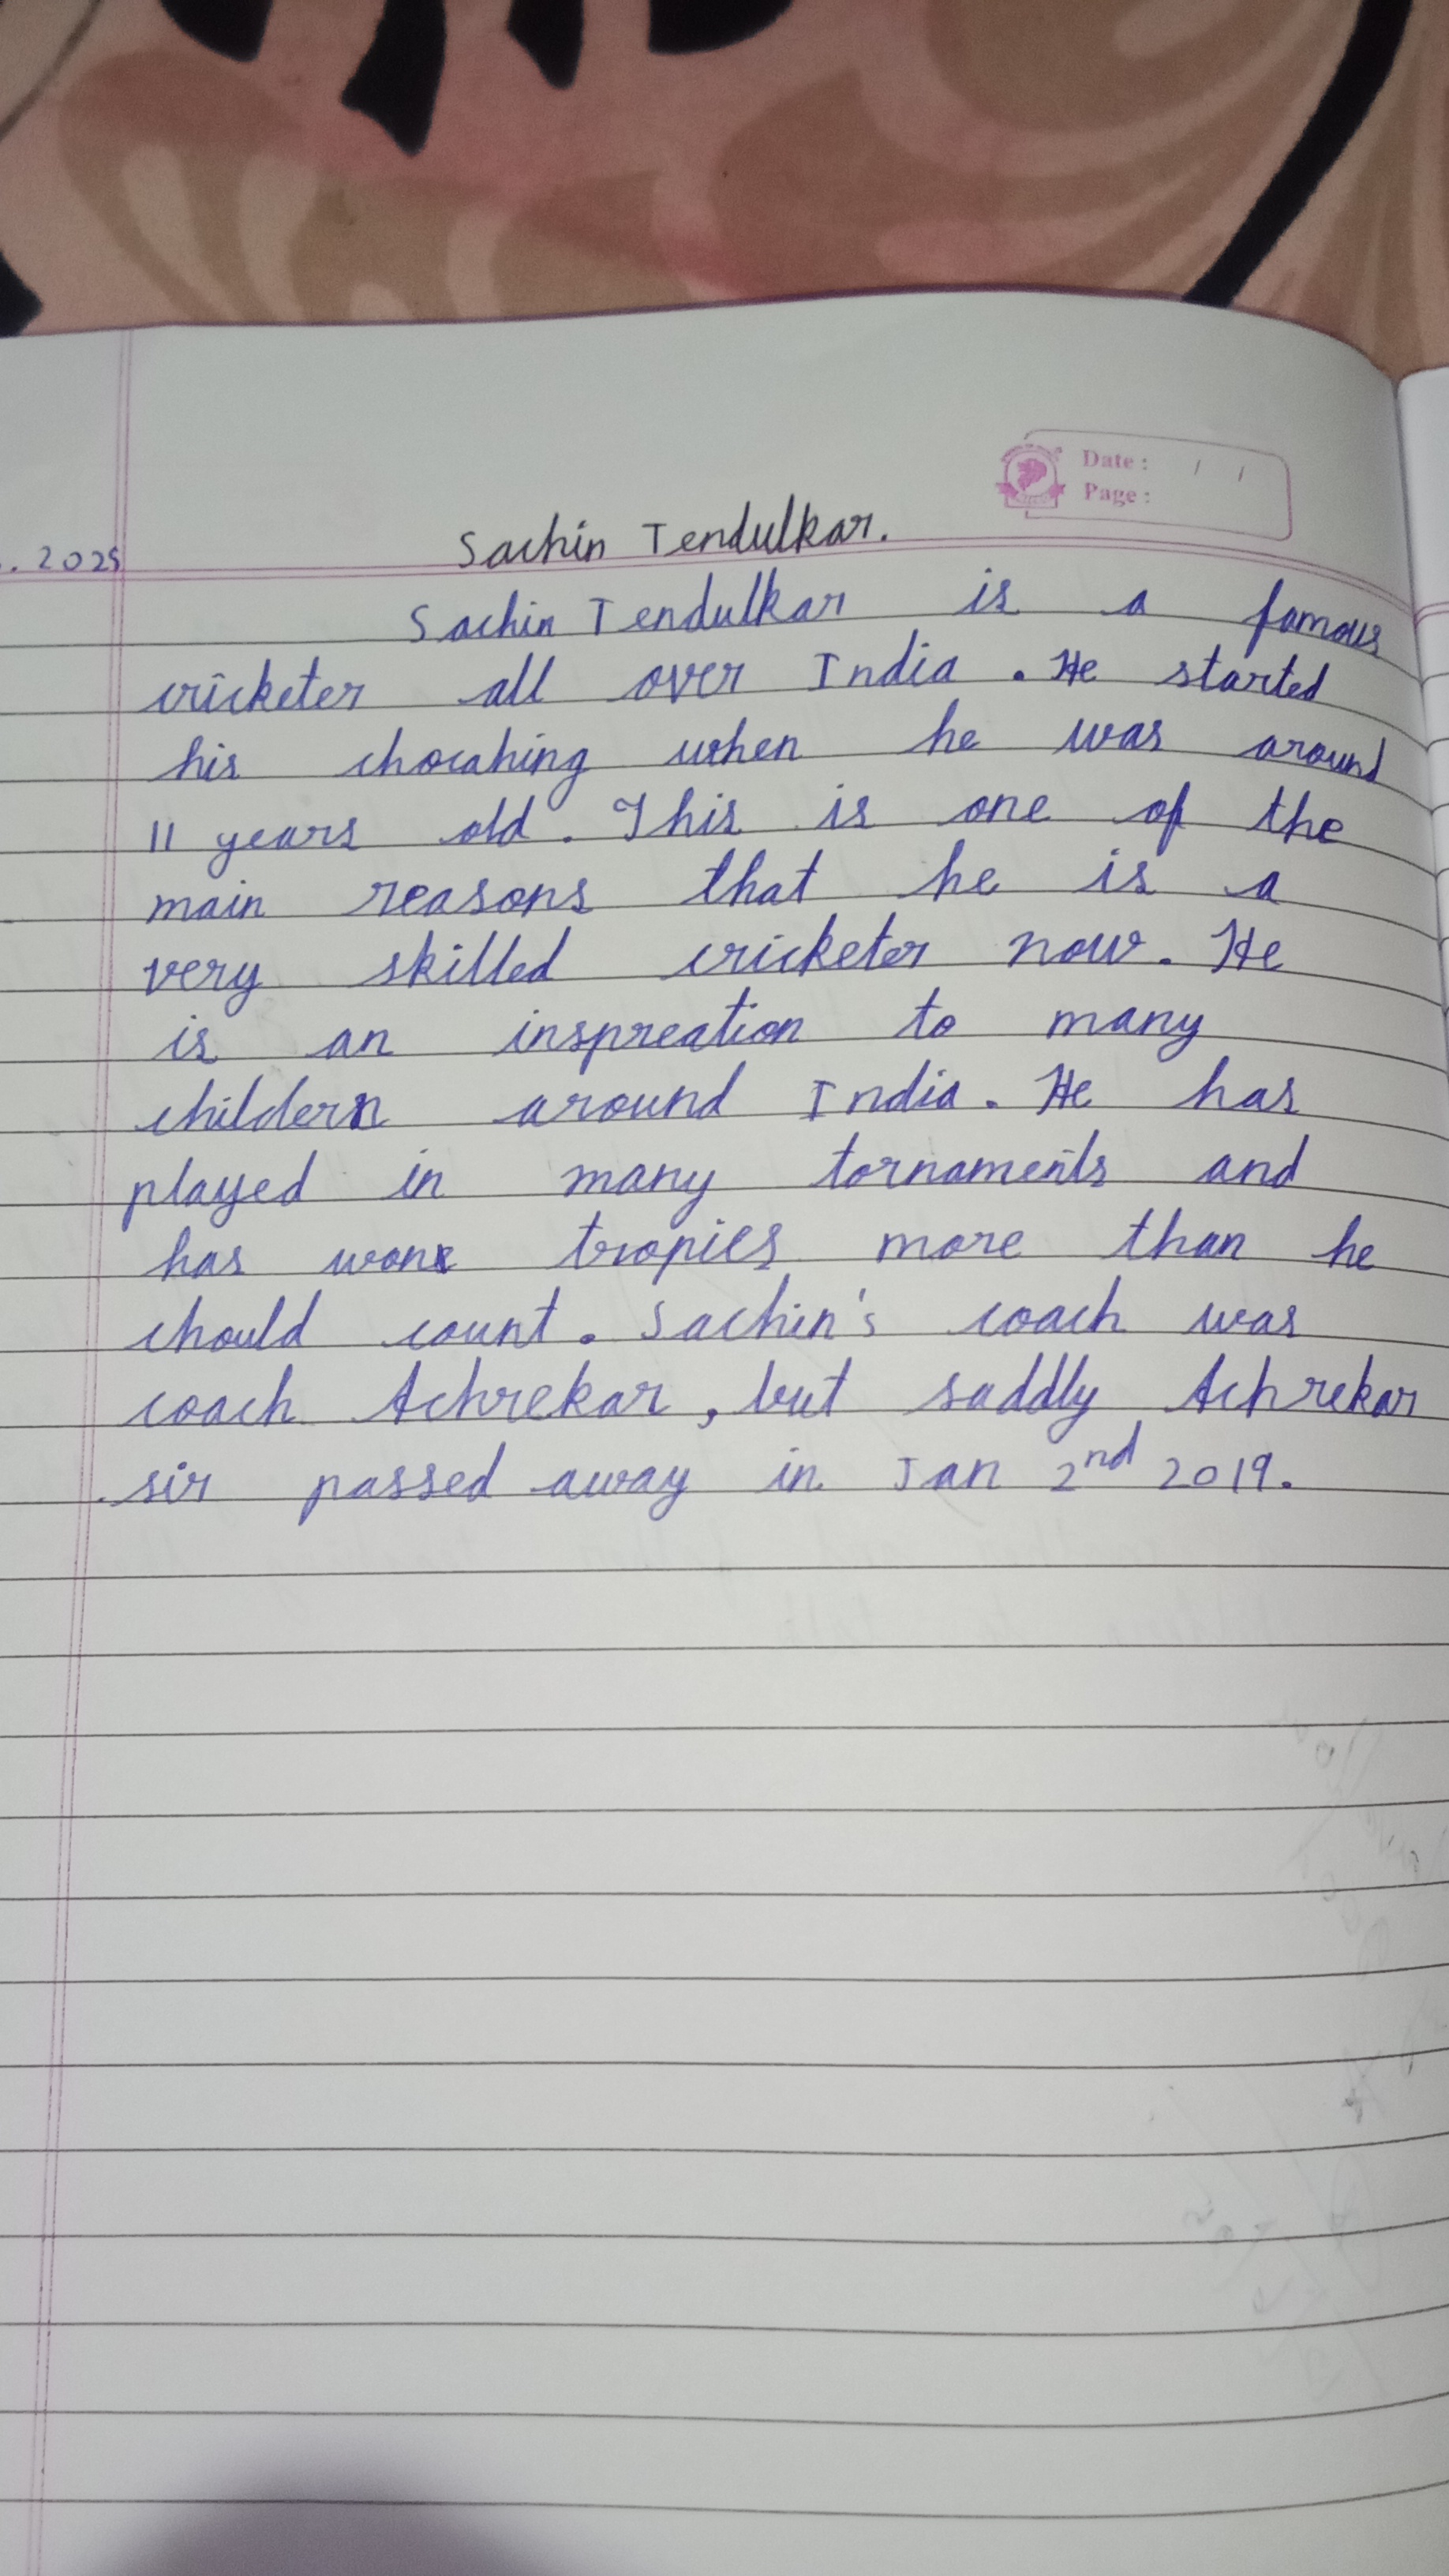 Date : / /
Page :
. 2025
Sachin Tendulkar.
Sachin Tendulkar is a famous
cricketer all over India . He started
his chocahing when he was around
11 years old. This is one of the
main reasons that he is a
very skilled cricketer now. He
is an inspreation to many
childern around India. He has
played in many tornaments and
has won tropies more than he
chould count. Sachin's coach was
coach Achrekar, but saddly Achrekar
sir passed away in Jan 2nd 2019.